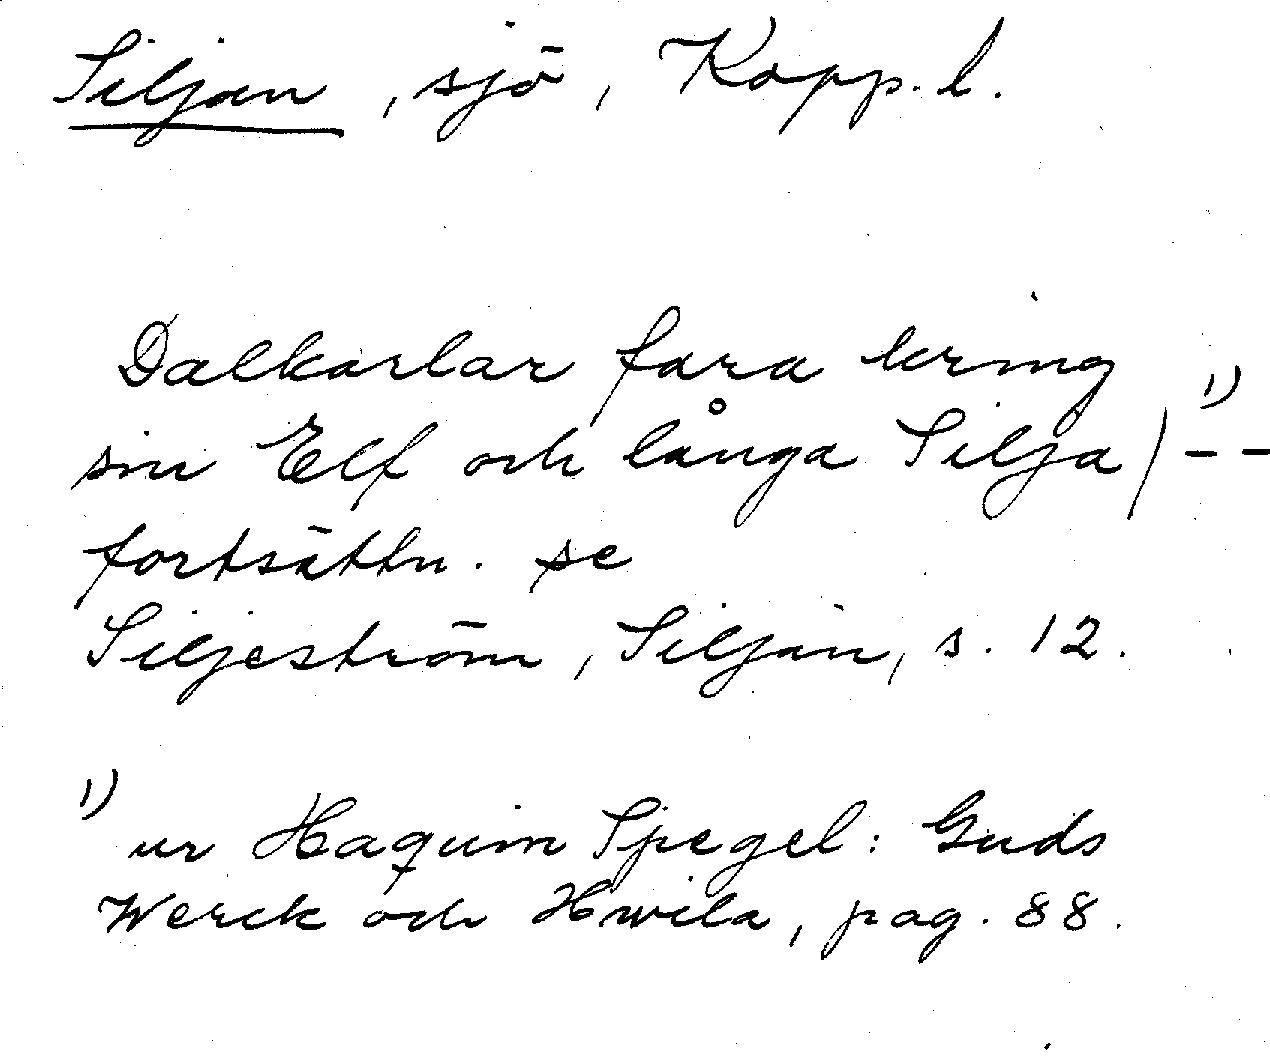 Siljan, sjö, Kopp. l.
Dalkarlar fara kring
sin Elf och långa Silja / -- 1)
fortsättn. se
Siljeström, Siljan, s. 12.
1) ur Haquin Spegel: Guds
Werck och Hwila, pag. 88.